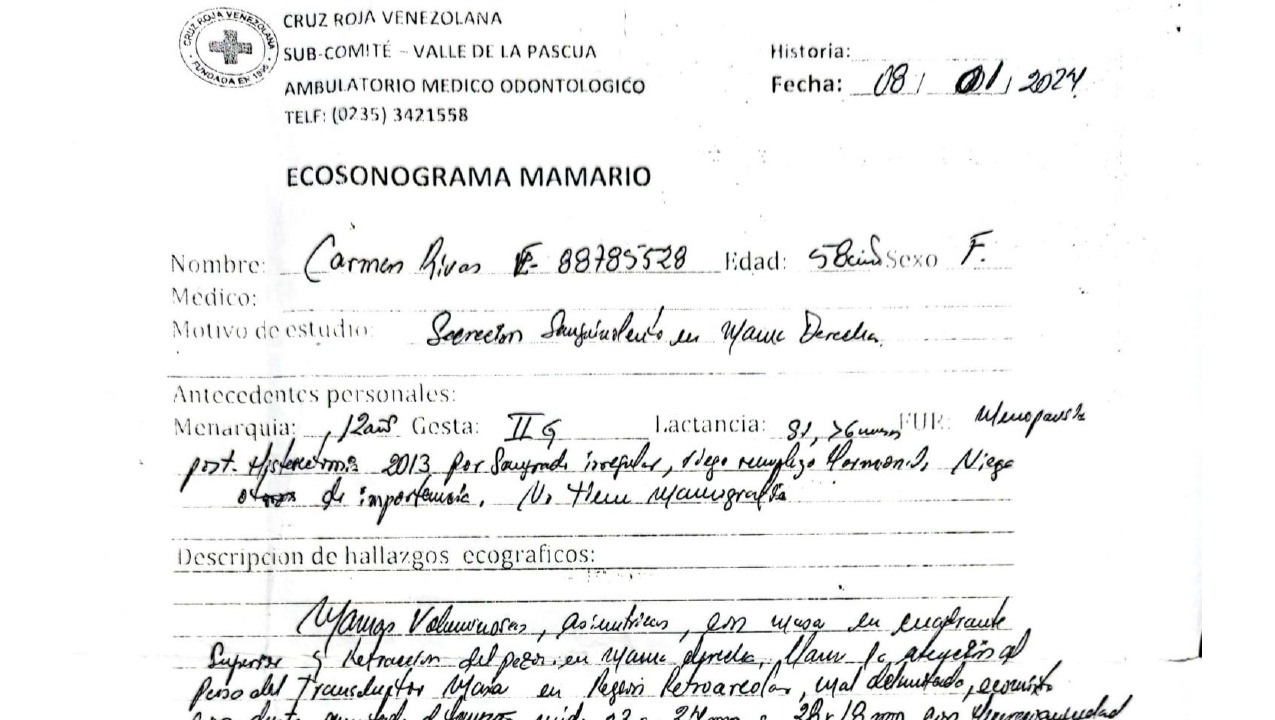 CRUZ ROJA VENEZOLANA
FUNDADA EN 1895
CRUZ ROJA VENEZOLANA
SUB-COMITÉ – VALLE DE LA PASCUA
AMBULATORIO MEDICO ODONTOLOGICO
TELF: (0235) 3421558
Historia:
Fecha: 08 / 01 / 2024
ECOSONOGRAMA MAMARIO
Nombre: Carmen Rivas 88785528 Edad: 58 años Sexo F.
Médico:
Motivo de estudio: Secrecion Sanguinolento en Mama Derecha.
Antecedentes personales:
Menarquia: 12 años Gesta: II G Lactancia: SI, >6 meses FUR: Menopausia
post. Histerectomia 2013 por Sangrado irregular, niego remplazo Hormonal, Niega
otros de importancia. No tiene Mamografia
Descripcion de hallazgos ecograficos:
Mamas Voluminosas, asimetricas, con masa en cuadrante
Superior y Retraccion del pezon en mama derecha, llama la atención al
paso del Transductor Masa en Region Retroareolar, mal delimitada,
mide 28 x 18 mm con